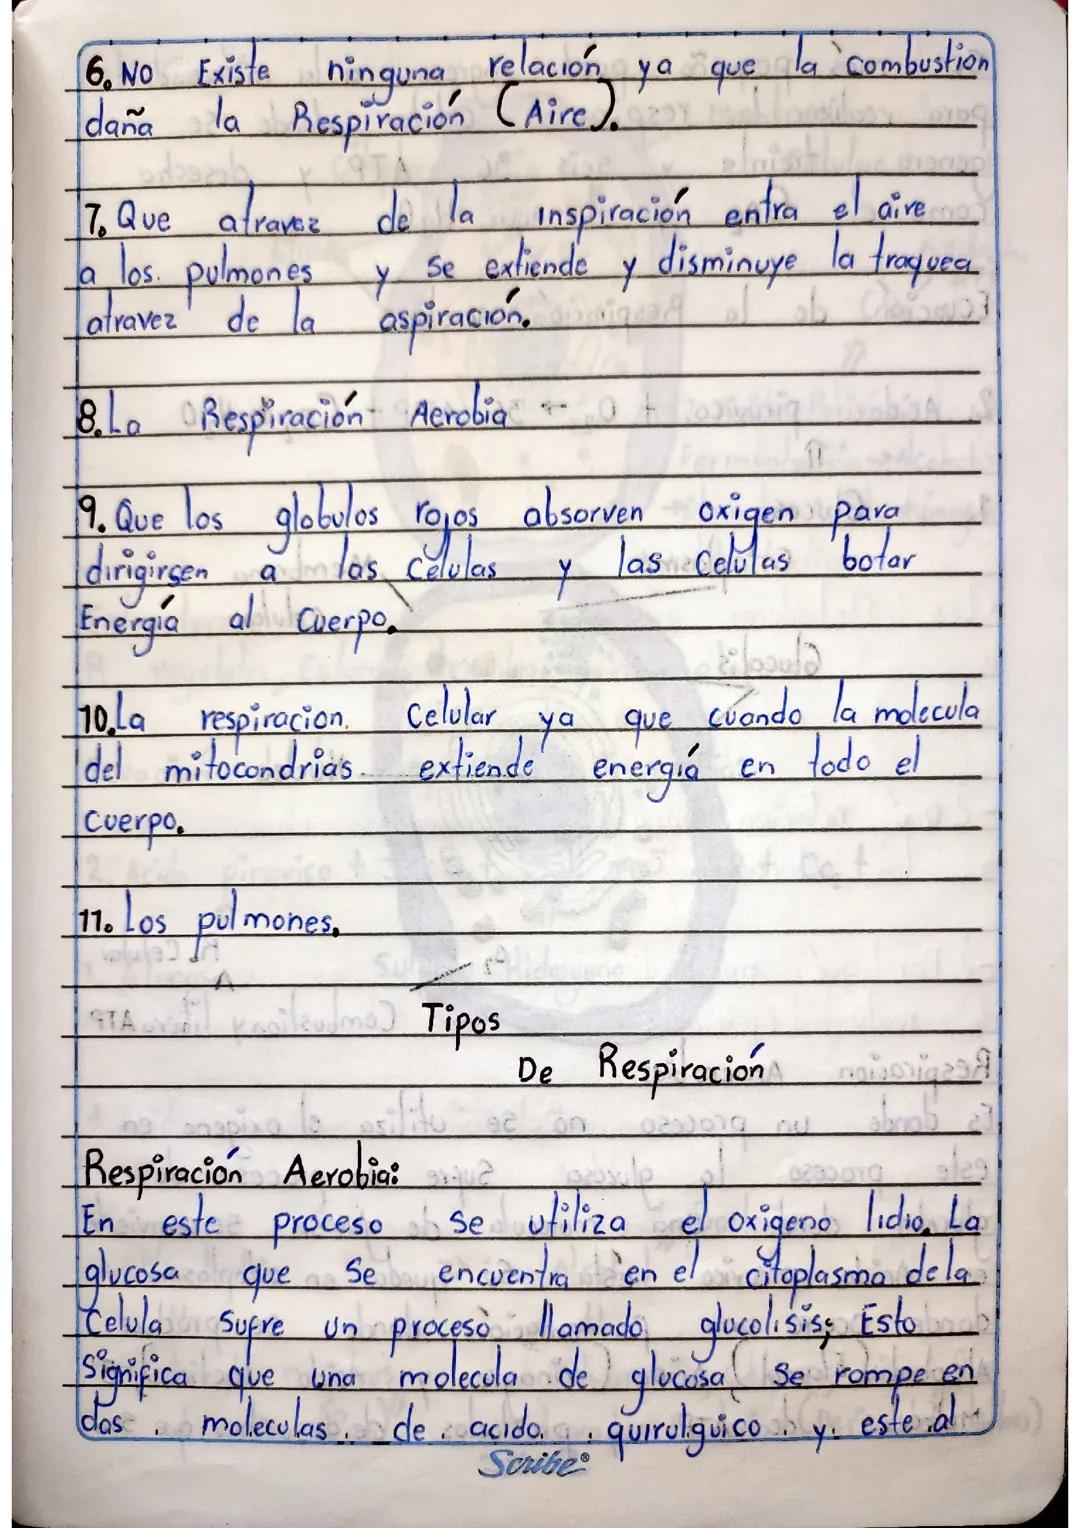 6. No Existe ninguna relación ya que la combustion
daña la Respiración (Aire).
7. Que atravez de la inspiración entra el aire
a los pulmones y se extiende y disminuye la traquea
atravez de la aspiración.
8. La Respiración Aerobia
9. Que los globulos rojos absorven oxigen para
dirigirsen a las Celulas y las Celulas botar
Energía al Cuerpo.
10. La respiracion Celular ya que cuando la molecula
del mitocondrias extiende energía en todo el
cuerpo.
11. Los pulmones.
Tipos
De Respiración
Respiración Aerobia:
En este proceso se utiliza el oxigeno lidio. La
glucosa que se encuentra en el citoplasma de la
Celula Sufre un proceso llamado glucolisis; Esto
Significa que una molecula de glucosa se rompe en
dos moleculas de acido quirulguico y este al
Scribe®